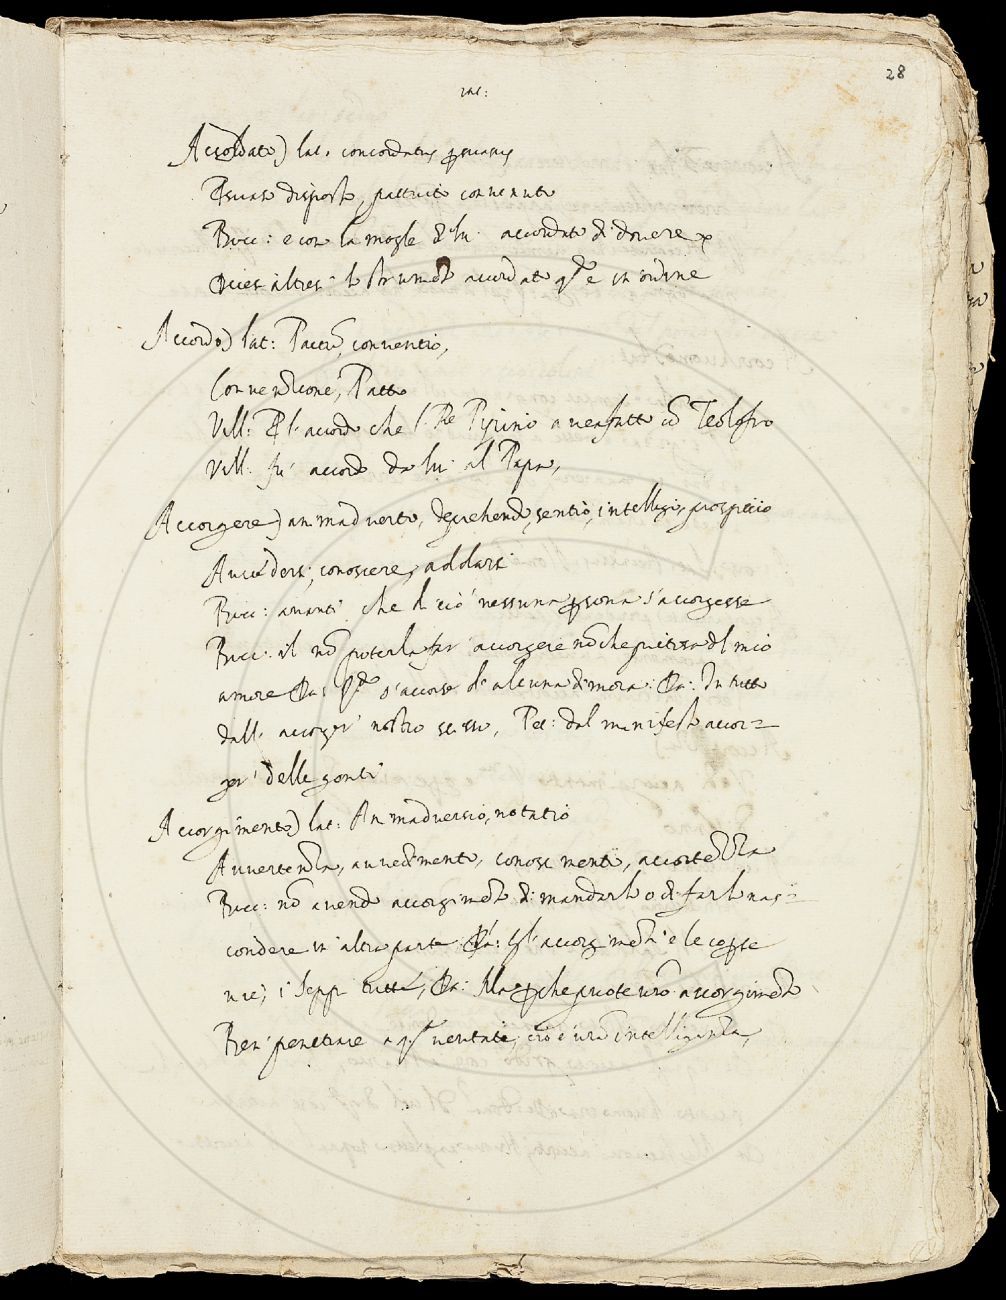 28
Accordato) lat. concordatus psuasus
Psuaso disposto, pattuito convenuto
Bocc: e con la mogle di lui accordato di dovere
altresi lo strumēto accordato e in ordine
Accordo) lat: Pactū, conventio,
Convenzione, Patto
Vill: l'accordo che l Re Pipino avea fatto cō Telofro
Vill. fu accordo da lui al Papa,
Accorgere) animadverto, deprehendo, sentio, intelligo, prospicio
Avvedersi, conoscere, addarsi
Bocc: avanti che di ciò nessuna psona s'accorgesse
Bocc: il nō poterla far accorgere nō che pietosa del mio
amore s'accorse di alcuna dimora: In tutto
dall accorger nostro scisso, Pet: dal manifesto accor=
ger delle genti
Accorgimento) lat: Animadversio, notatio
Avvertenza, avvedimento, conoscimento, accortezza
Bocc: nō avendo accorgimēto di mandarlo o di farlo nas=
condere in altra parte: gl'accorgimēti e le coperte
vie, i seppi tutte, Ma pche puote vro accorgimēto
Ben penetrare a veritate, ciò è vra intelligenza,